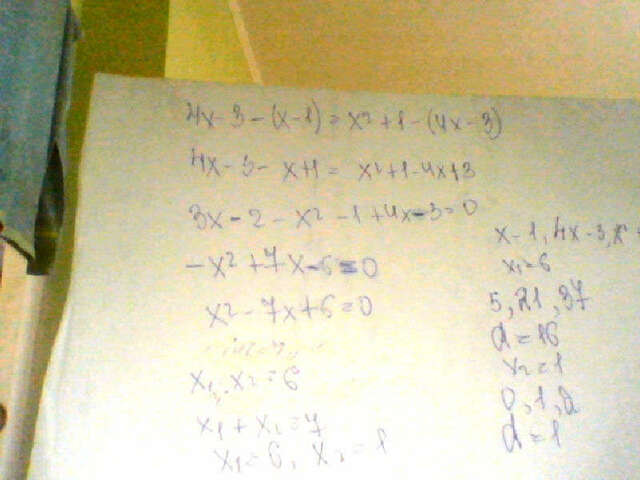 4x-3-(x-1)=x²+1-(4x-3)
4x-3-x+1= x²+1-4x+3
3x-2-x²-1+4x-3=0
-x²+7x-6=0
x²-7x+6=0
x₁·x₂=6
x₁+x₂=7
x₁=6, x₂=1
x-1, 4x-3, x²+
x₁=6
5, 21, 37
d=16
x₂=1
0, 1, 2
d=1